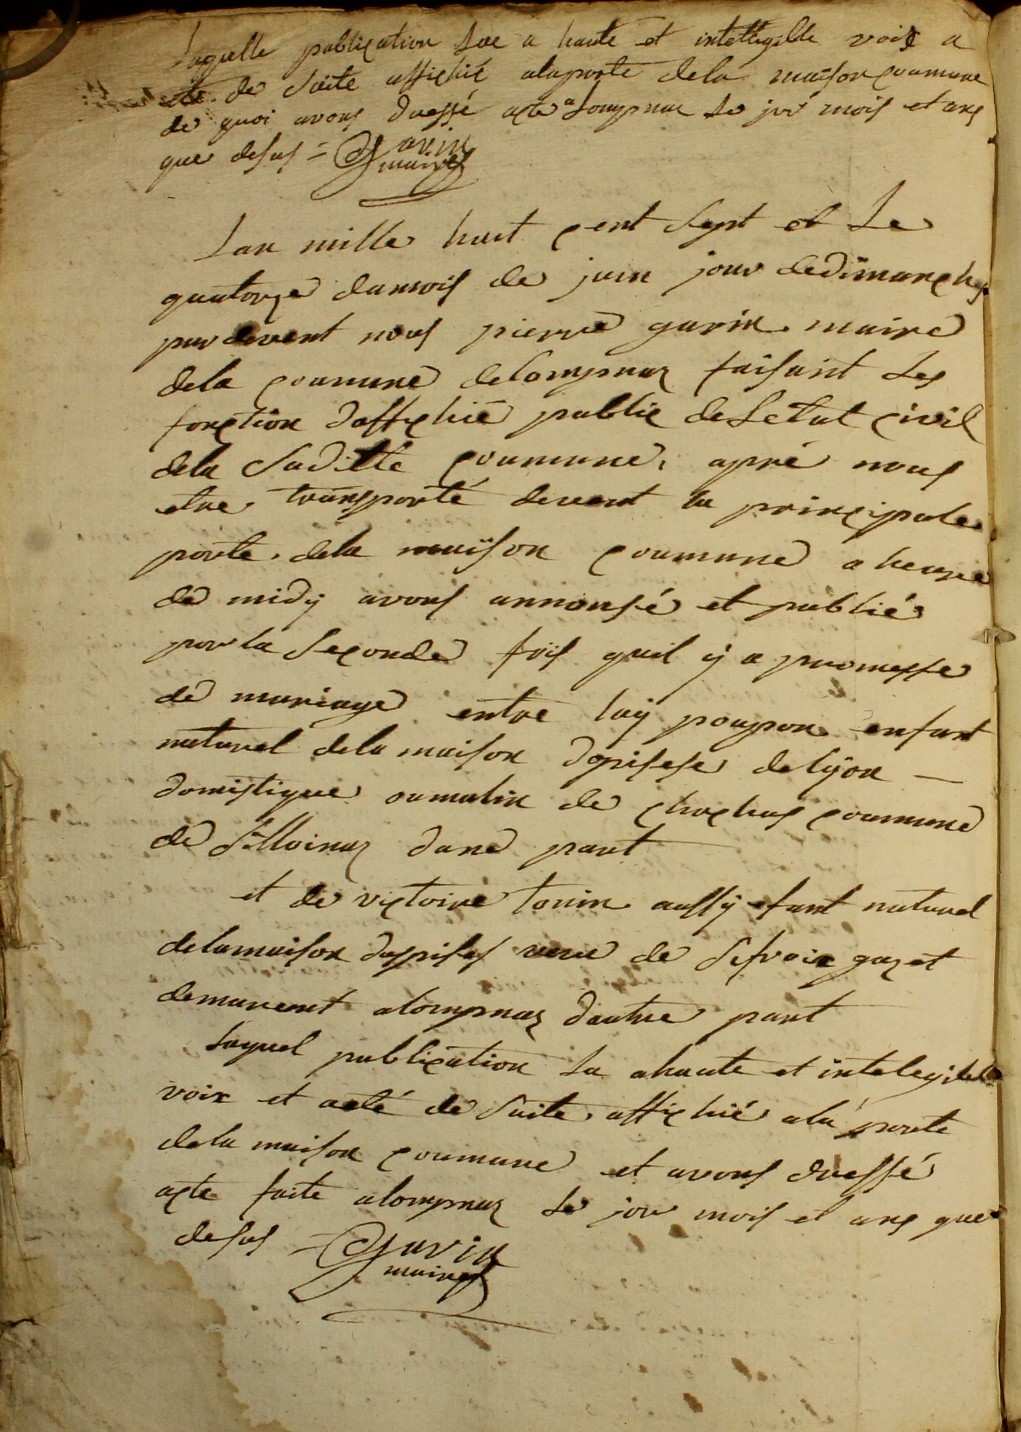 Laquelle publication lue a haute et intelligible voix a
été de suite affiché alaporte dela maison coumune
de quoi avons dressé acte a Lompnaz le jor mois et ans
que desus = Garin
maire
Lan mille huit cent sept et Le
quatorze dumois de juin jour dedimanche
pardevent nous pierre garin maire
dela coumune delompnaz faisant Les
fonction daffichié public deLetat civil
dela suditte coumune, apré nous
etre transporté devent la principale
porte dela maison coumune a heure
de midy avons annonsé et publié
pour la seconde fois quil y a promesse
de mariage entre luy poupon enfant
naturel dela maison dopisese delyon —
domistique oumulin de chochas coumune
de St Moinaz dune part
et de victoire tonin aussy efant naturel
delamaison daspises veve de gazet
demurent alompnaz dautre part
Laquel publication lu ahaute et intelegible
voix et aeté de suite affiché ala porte
dela maison coumune et avons dressé
acte faite alompnaz le jour mois et ans que
desus = Garin
maire